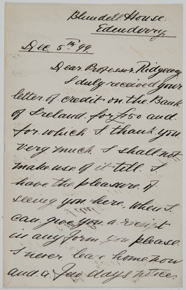 Blundell House
Edenderry
Dec 5th 99
Dear Professor Ridgeway
I duly received your
letter of credit on the Bank
of Ireland for £50 and
for which I thank you
very much I shall not
make use of it till I
have the pleasure of
seeing you here. when I
can give you a receipt
in any form you please
I never leave home now
and a few days notice